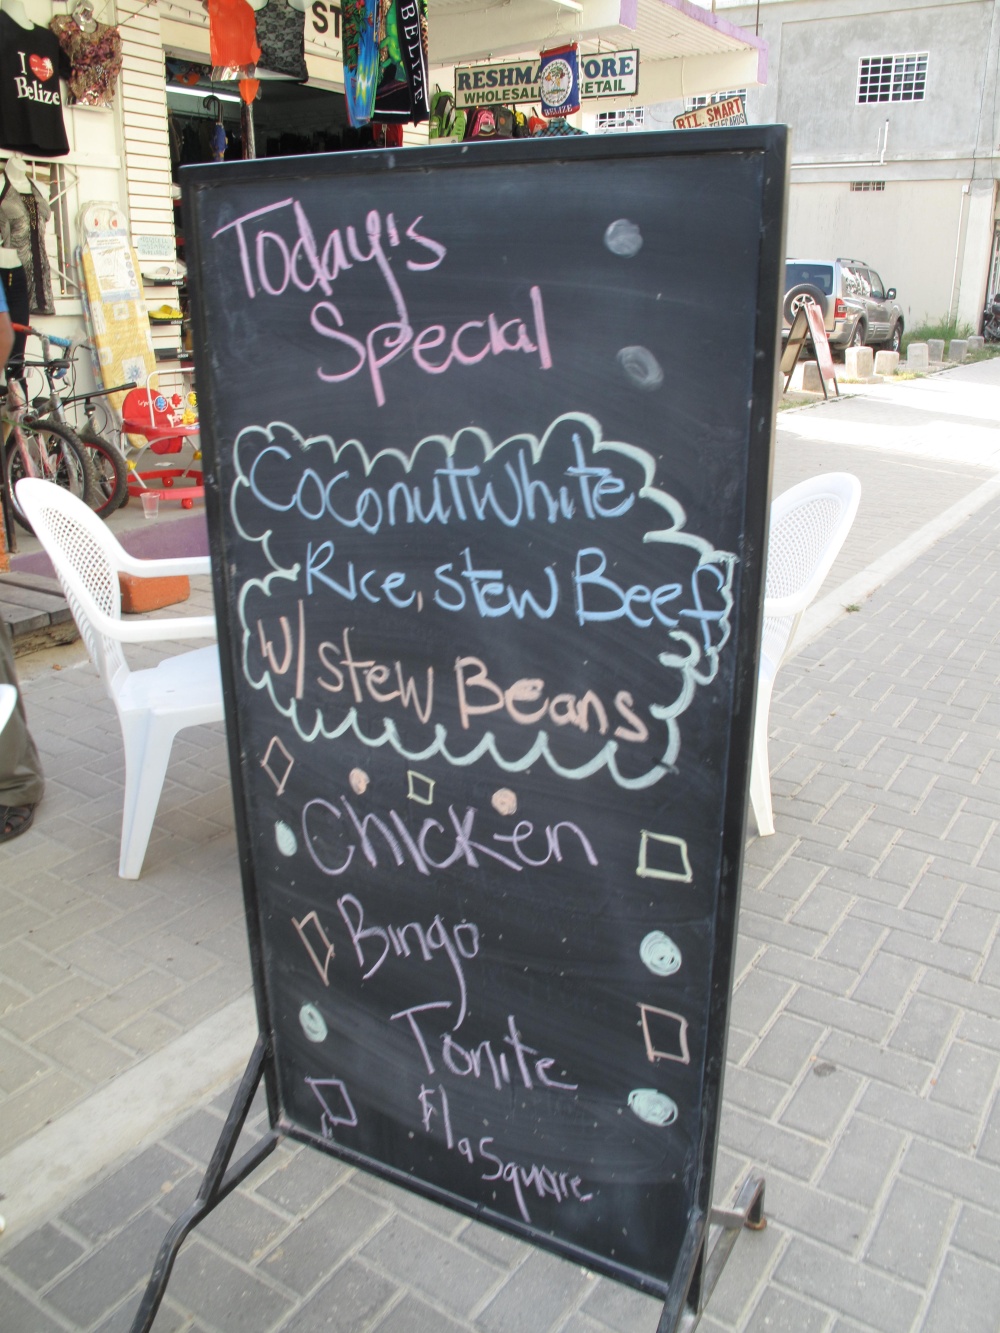 I
Belize
ST
BELIZE
RESHMA ORE
WHOLESAL ETAIL
BELIZE
BTL SMART
Today's
Special
Coconut White
Rice, Stew Beef
w/ Stew Beans
Chicken
Bingo
Tonite
$1 a Square